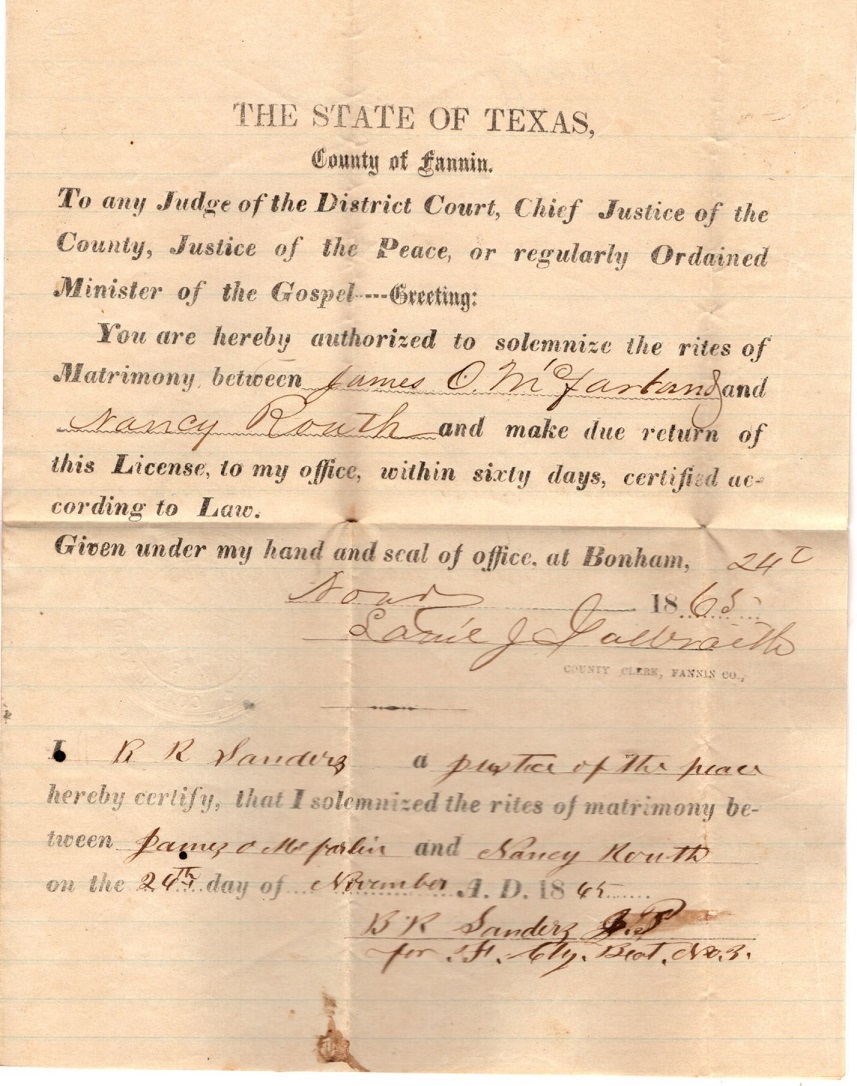 THE STATE OF TEXAS,
County of Fannin.
To any Judge of the District Court, Chief Justice of the
County, Justice of the Peace, or regularly Ordained
Minister of the Gospel---Greeting:
You are hereby authorized to solemnize the rites of
Matrimony between James O. McFarland and
Nancy Routh and make due return of
this License, to my office, within sixty days, certified ac-
cording to Law.
Given under my hand and seal of office, at Bonham, 24t
1865
J Galbraith
COUNTY CLERK, FANNIN CO.,
I B R Sanders a justice of the peace
hereby certify, that I solemnized the rites of matrimony be-
tween James O McFarlin and Nancy Routh
on the 24th day of November A. D. 1865
B R Sanders J.P
for F. Cty. Beat. No. 3.